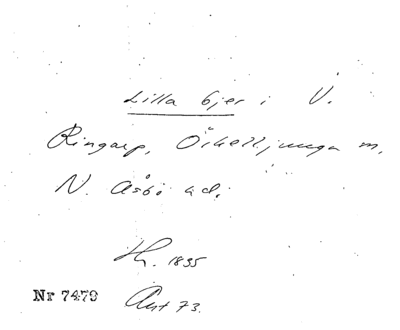 Lilla bjer i V.
Ringarp, Örkelljunga m.
N. Åsbo hd.
1895
Nr 7479
Ant 73.